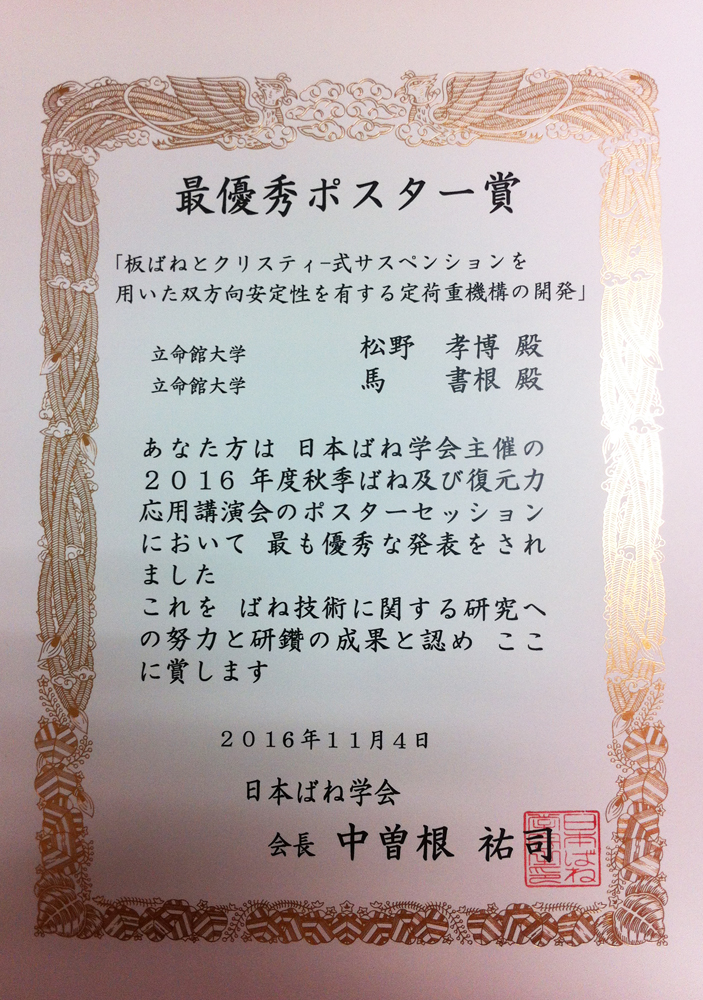 最優秀ポスター賞
「板ばねとクリスティ-式サスペンションを
用いた双方向安定性を有する定荷重機構の開発」
立命館大学 松野 孝博 殿
立命館大学 馬 書根 殿
あなた方は 日本ばね学会主催の
2016 年度秋季ばね及び復元力
応用講演会のポスターセッション
において 最も優秀な発表をされ
ました
これを ばね技術に関する研究へ
の努力と研鑽の成果と認め ここ
に賞します
2016年11月4日
日本ばね学会
会長 中曽根 祐司
日本ばね